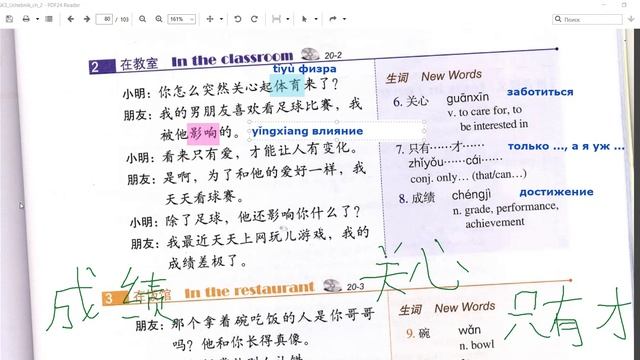 GK3_Uchebnik_ch_2 - PDF24 Reader
80 / 103
161%
Поиск
2 在教室 In the classroom 20-2
tǐyù физра
小明：你怎么突然关心起体育来了？
朋友：我的男朋友喜欢看足球比赛，我
被他影响的。
yǐngxiang влияние
小明：看来只有爱，才能让人有变化。
朋友：是啊，为了和他的爱好一样，我
天天看球赛。
小明：除了足球，他还影响你什么了？
朋友：我最近天天上网玩儿游戏，我的
成绩差极了。
生词 New Words
6. 关心 guānxīn заботиться
v. to care for, to
be interested in
7. 只有……才…… только ..., а я уж ...
zhǐyǒu……cái……
conj. only… (that/can…)
8. 成绩 chéngjì достижение
n. grade, performance,
achievement
成绩
关心
只有才
3 在饭馆 In the restaurant 20-3
朋友：那个拿着碗吃饭的人是你哥哥
吗？他和你长得真像。
生词 New Words
9. 碗 wǎn
n. bowl